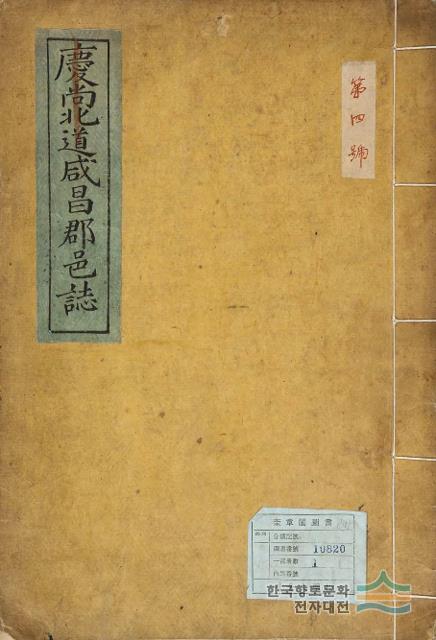 慶尚北道咸昌郡邑誌
第四號
奎章閣圖書
圖書番號 10820
一部冊數 1
한국향토문화
전자대전